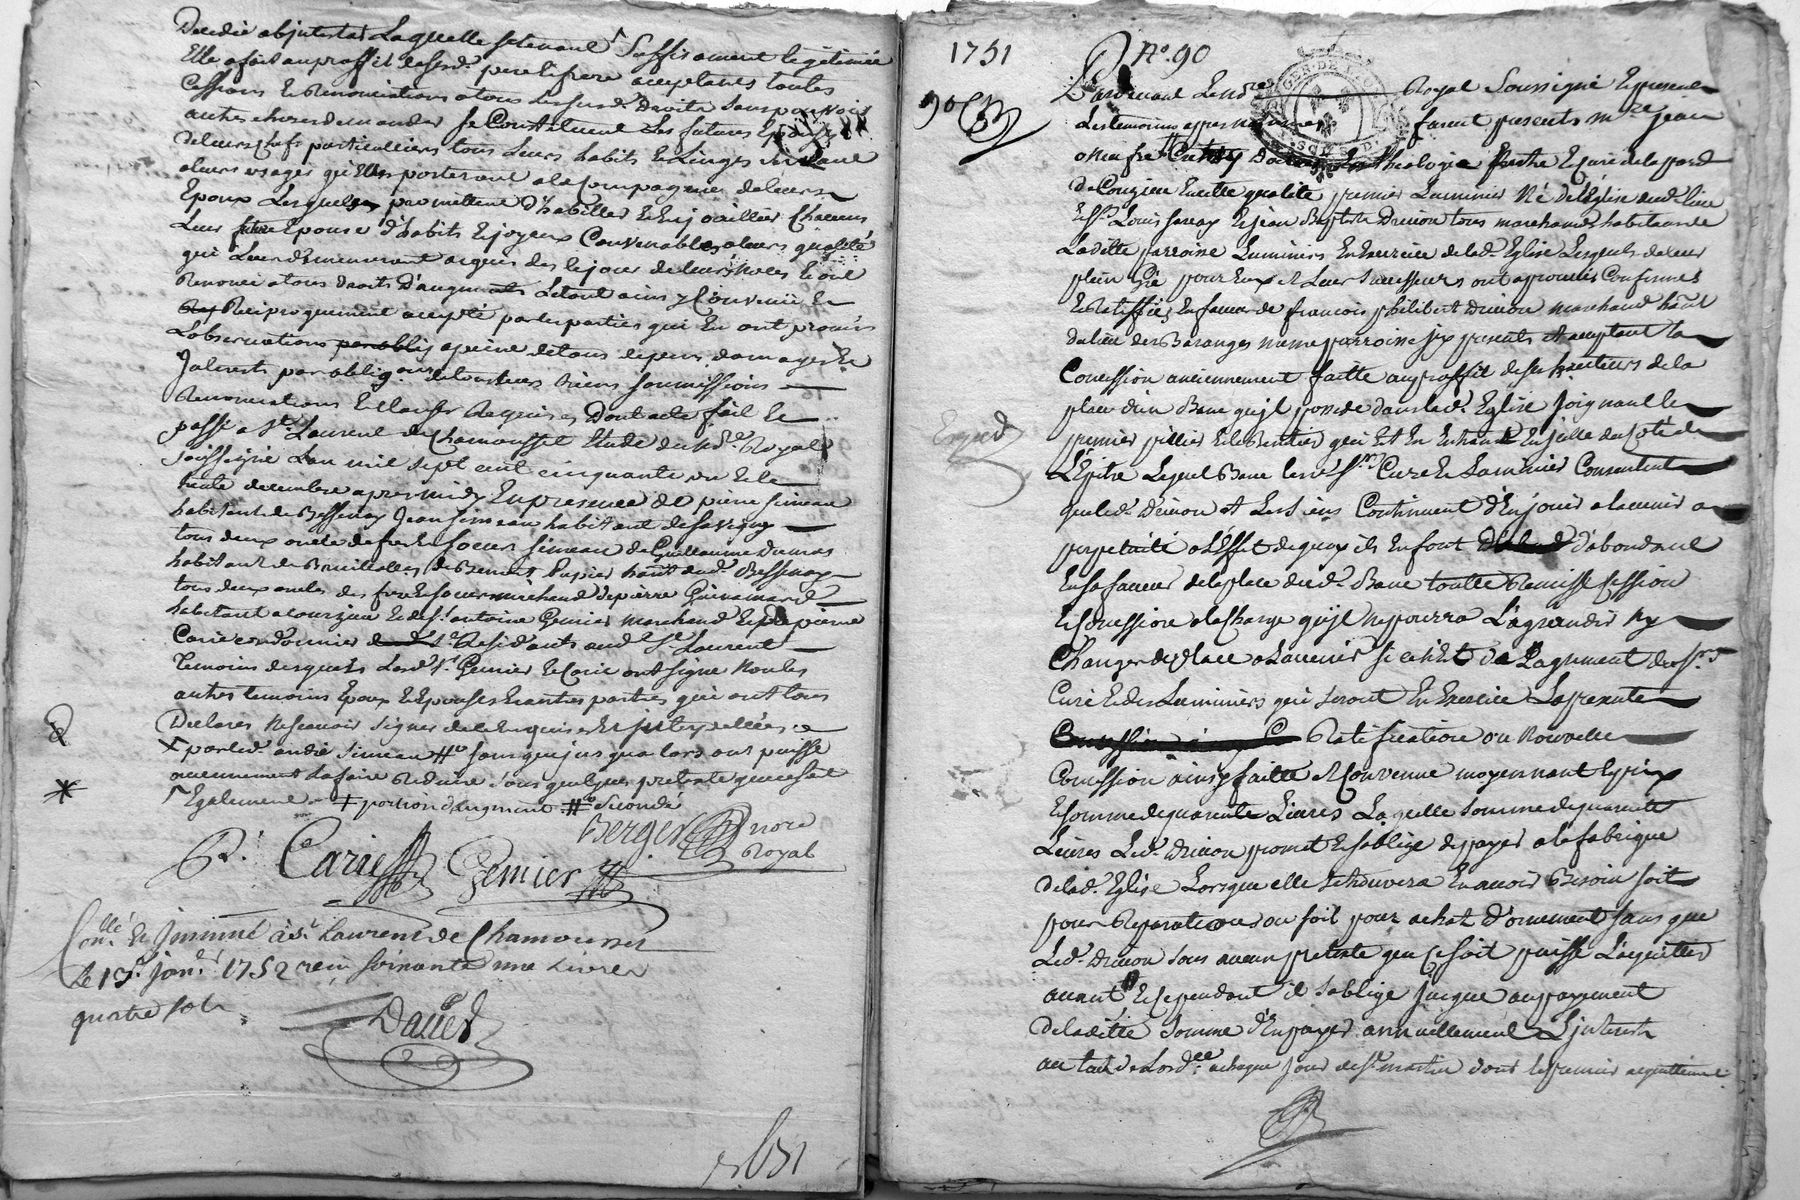 Laquelle se tenant suffisament légitimée
Elle a fait au proffit de sesd. pere et frere acceptants toutes
Cessions et Renonciations a tous lesusd. droits sans pouvoir
autres choses demander se Constituent les futures Epouses
de leurs chefs particulliers tous leurs habits et Linges servant
a leurs usages qu'Elles porteront a la Compagnie de leurs
Epoux Lesquels promettent d'habiller et Enjoailler Chacuns
Leur Epouse d'habits et joyeux Convenables a leurs qualités
qui Leur demeureront acquis des le jour de leurs noces et ont
Renoncé a tous droits d'augments Le tout ainsy Convenu et
Reciproquement accepté par les parties qui En ont promis
L'observations a peine de tous depens domages et
Interests par oblig.on de tous leurs biens soumissions
Renonciations et clauses Requises Dont acte fait et
passé a St. Laurent de Chamousset Etude dud. no.re Royal
soussigné L'an mil sept cent cinquante un et le
trente decembre apres midy En presence de pierre Simean
habitant de Bessenay Jean Simean habitant de Savigny
tous deux oncle de frere et soeurs Simean de Guillaume Dumas
habitant de Brullioles de Benoit habt. aud. Bessenay
tous deux oncles des frere et soeur marchand de pierre
habitant a Courzieu et de Sr. antoine Gemier marchand et de pierre
Carie cordonnier Residants aud. St. Laurent
temoins desquels Lesd. Sr. Gemier et Carie ont signé non les
autres temoins Epoux et Epouses et autres parties qui ont tous
Declarés ne scavoir signer de ce Enquis et
+ par led. andré Simean # sans que jusqu'alors on puisse
aucunement la faire Reduire sous quelque pretexte que ce soit
Egalement + portion d'augment # seconde
Berger nore
Royal
Carie Gemier
Con.llé et Insinué à St. Laurent de Chamousset
le 13e janr. 1752 reçu soixante une Livres
quatre sols
Daved
1751 No. 90
90
Pardevant Le No.re Royal Soussigné En presence
Les temoins apres nommés furent presents m.re jean
Docteur En Theologie prêtre Et curé de la paroisse
de Courzieu En cette qualité premier Luminier Né de l'Eglise dud. lieu
et Srs. Louis Et Jean Baptiste Drivon tous marchands habitants de
Laditte parroisse Luminiers En Exercice de lad. Eglise Lesquels de leur
plein gré pour Eux et Leurs successeurs ont approuvés Confirmés
Et Ratiffiés En faveur de françois philibert Drivon marchand habt.
du lieu des Baranges meme parroisse icy present et acceptant la
Concession anciennement faitte au proffit de ses hauteurs de la
place d'un Banc qu'jl possede dans lad. Eglise joignant le
Expedé
premier pillier Et le Benitier qui Est En Entrant En jcelle du Coté de
L'Epitre Lequel Banc lesd. Srs. Curé Et Luminier Consentent
que led. Drivon et Les siens Continuent d'En jouir a l'avenir a
perpetuité a L'Effet de quoy ils En font d'abondant
En sa faveur de la place dud. Banc toutte Remisse Cession
Et Concession a la Charge qu'jl ne pourra L'agrandir ny
Changer de place a L'avenir si ce n'Est de L'agrement desd. Srs.
Curé Et des Luminiers qui seront En Exercice La presente
Ratification ou Nouvelle
Concession ainsy faitte et Convenue moyennant Le prix
Et somme de quarente Livres Laquelle somme de quarente
Livres Led. Drivon promet Et s'oblige de payer a la fabrique
de lad. Eglise Lorsque elle se trouvera En avoir Besoin soit
pour Reparations ou soit pour achat d'ornement sans que
Led. Drivon sous aucun pretexte que ce soit puisse L'aquitter
avant Et cependant il s'oblige jusque au payement
de laditte somme d'En payer annuellement L'jnterest
au taux de L'ord.ce a chaque jour de St. martin dont le premier acquittement